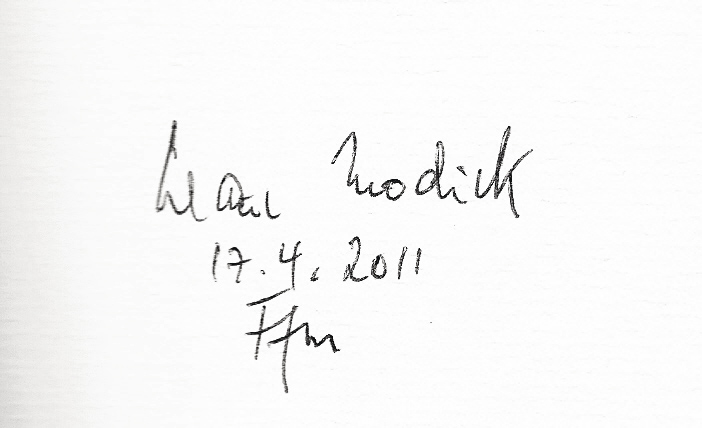 Klaus Modick
17.4.2011
Ffm